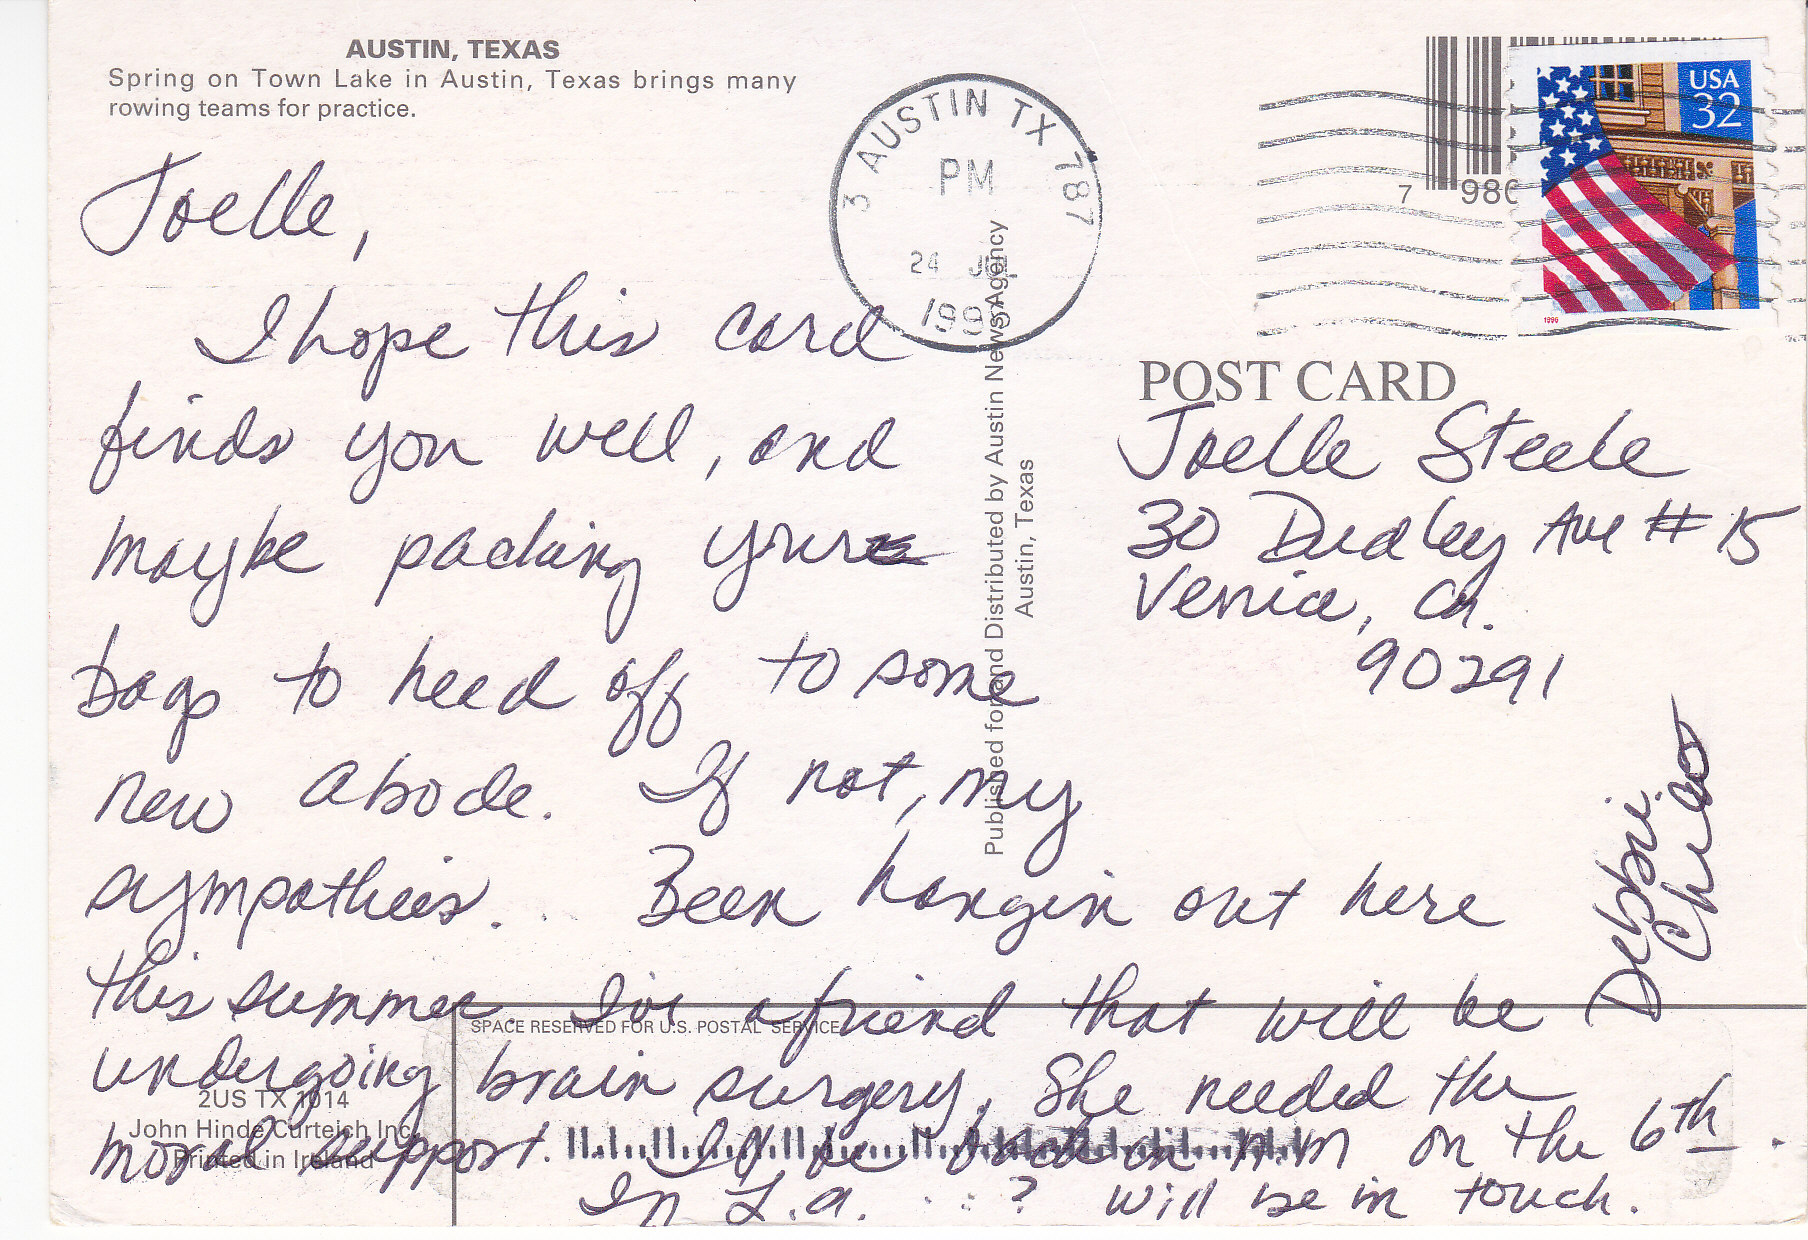 AUSTIN, TEXAS
Spring on Town Lake in Austin, Texas brings many
rowing teams for practice.
3 AUSTIN TX 787
PM
24 JUL
199
7 980
USA
32
1996
POST CARD
Joelle,
I hope this card
finds you well, and
maybe packing your
bags to head off to some
new abode. If not, my
sympathies. Been hangin out here
this summer for a friend that will be
undergoing brain surgery. She needed the
moral support. I'll be back in N.M on the 6th.
In L.A. . . ? Will be in touch.
Debbi
Published for and Distributed by Austin News Agency
Austin, Texas
Joelle Steele
30 Dudley Ave # 15
Venice, Ca.
90291
SPACE RESERVED FOR U.S. POSTAL SERVICE
2US TX 1014
John Hinde Curteich Inc.
Printed in Ireland